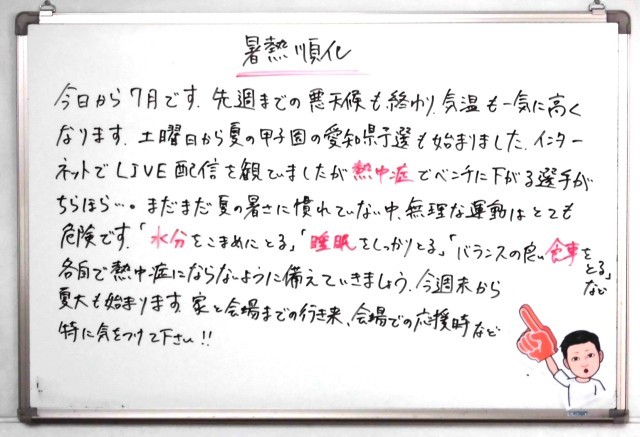 暑熱順化
今日から7月です。先週までの悪天候も終わり、気温も一気に高く
なります。土曜日から夏の甲子園の愛知県予選も始まりました。インター
ネットでLIVE配信を観ていましたが熱中症でベンチに下がる選手が
ちらほら…。まだまだ夏の暑さに慣れていない中、無理な運動はとても
危険です。「水分をこまめにとる」「睡眠をしっかりとる」「バランスの良い食事をとる」など
各自で熱中症にならないように備えていきましょう。今週末から
夏大も始まります。家と会場までの行き来、会場での応援時など
特に気をつけて下さい!!